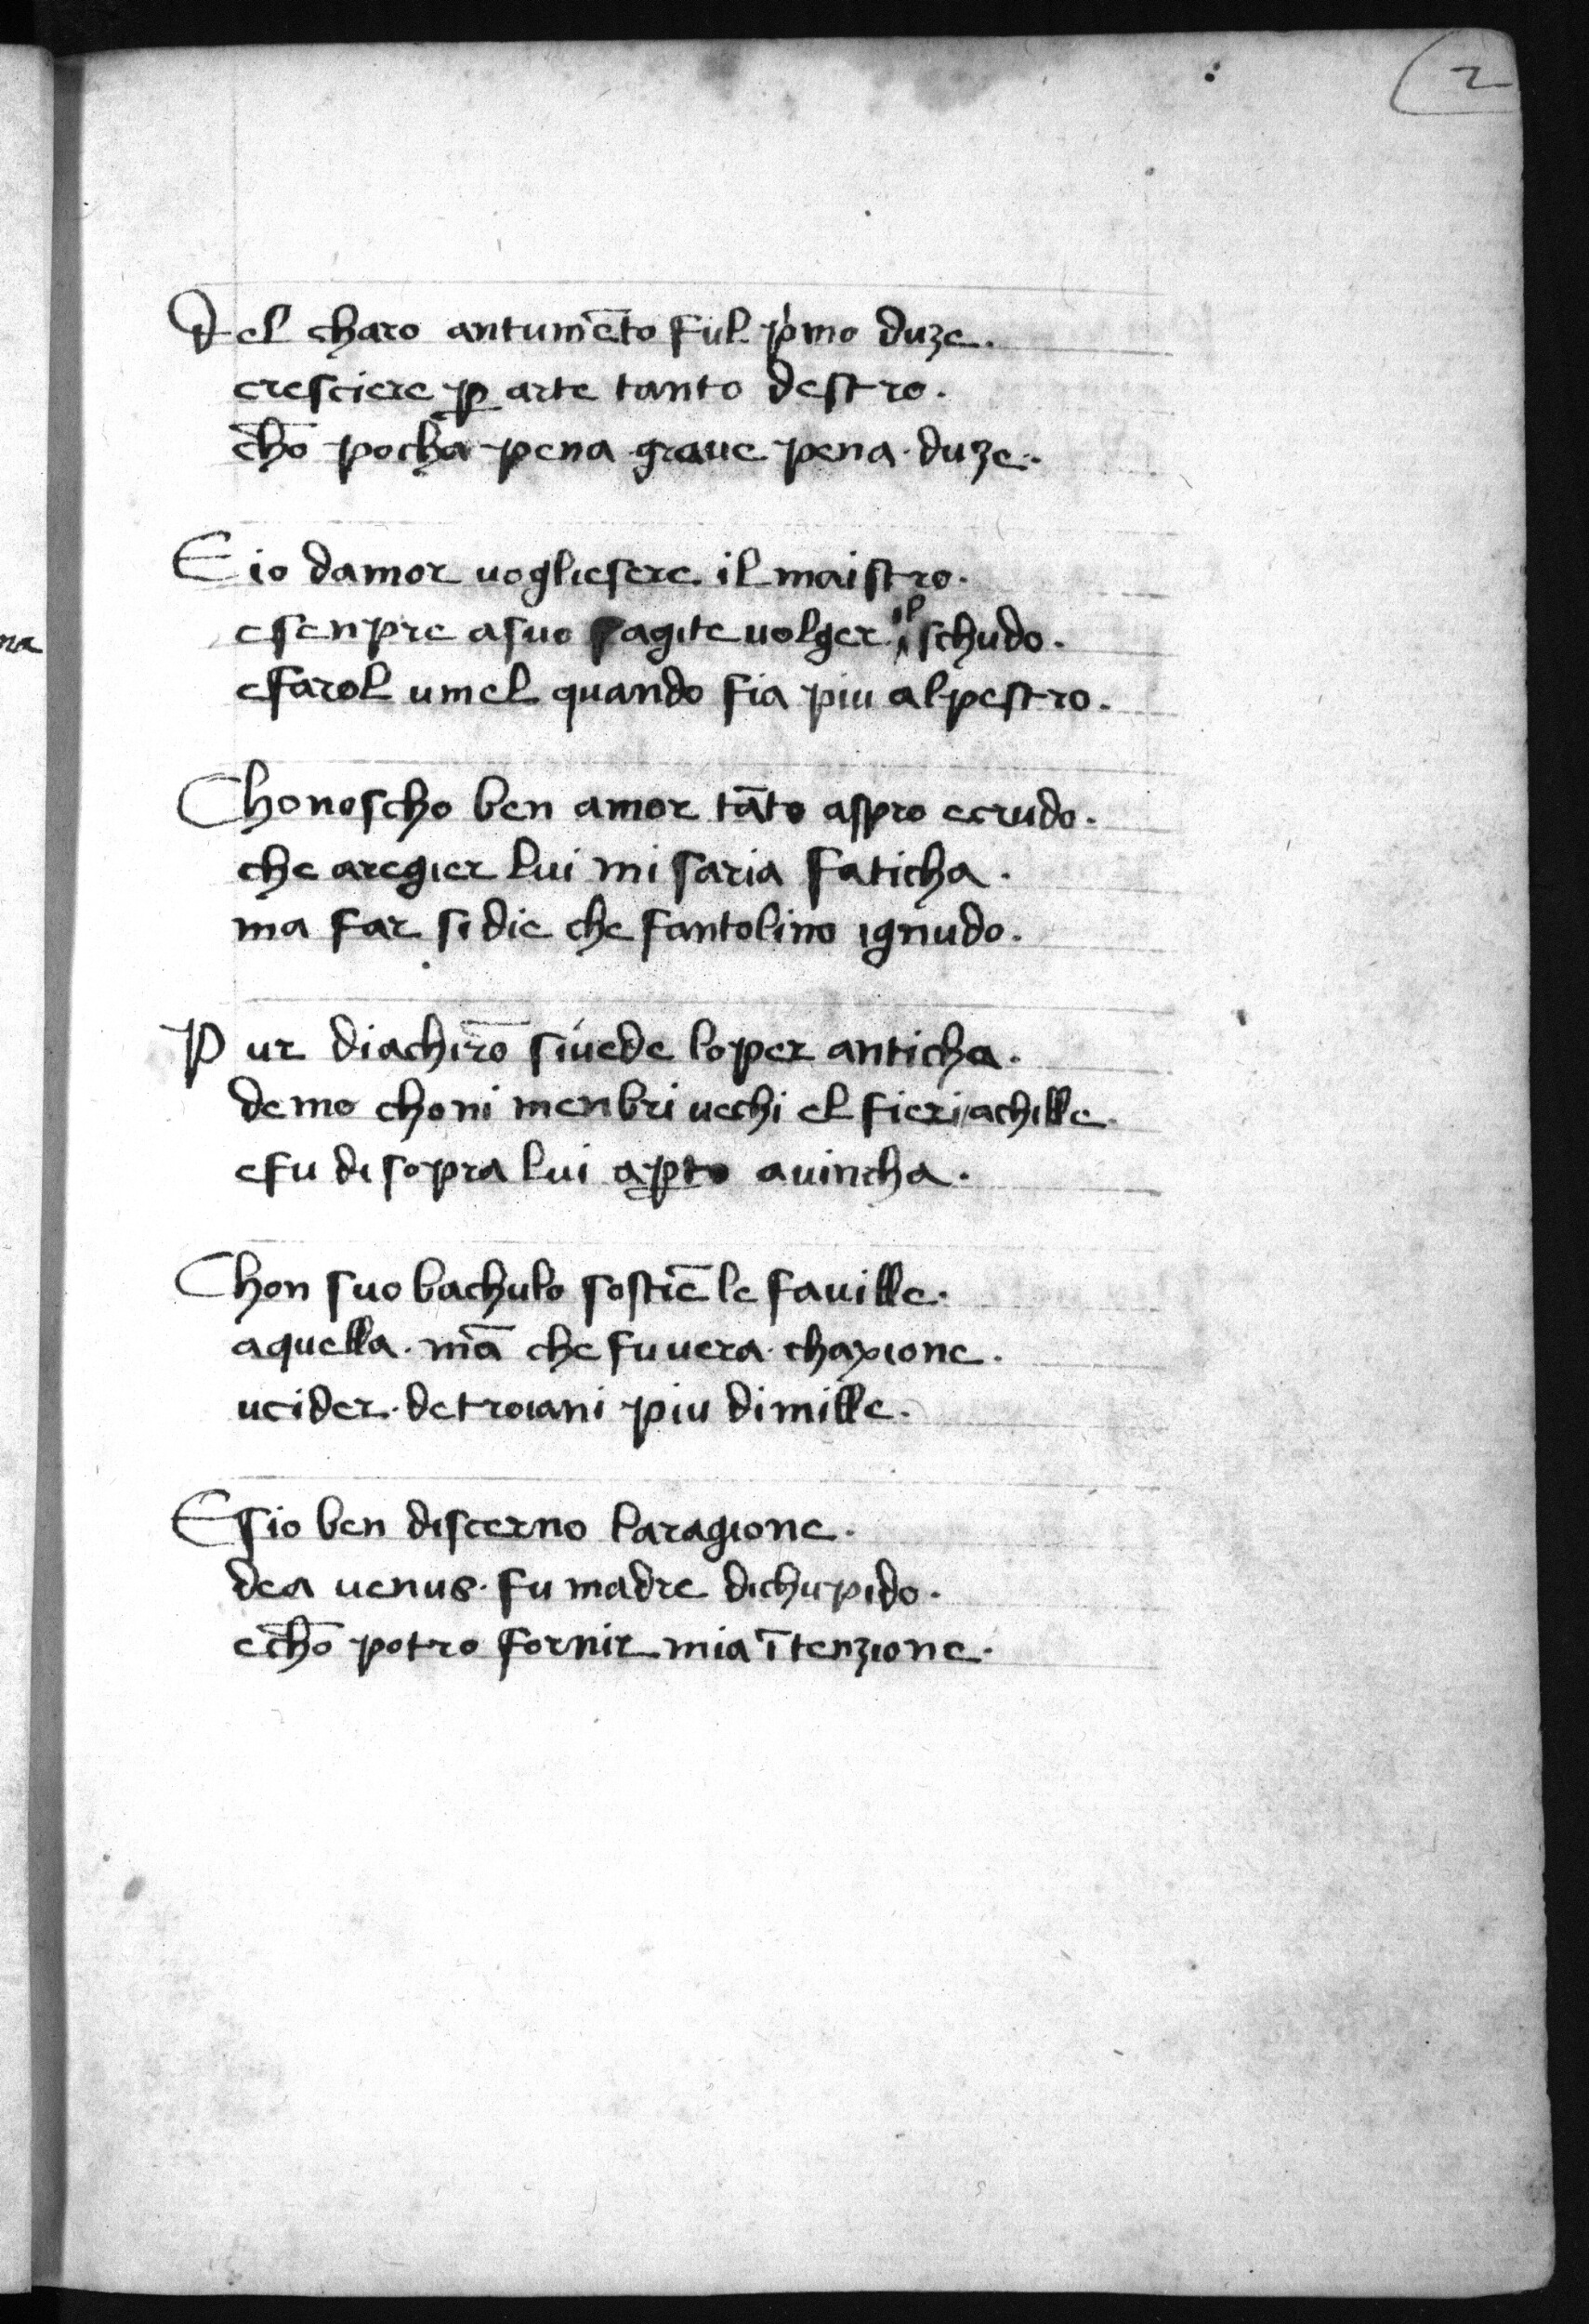 2
Del charo antumēto ful pͥmo duze.
cresciere ꝑ arte tanto destro.
chō pocha pena graue pena. duze.
E io damor uogliesere il maistro.
e senpre a suo sagite uolger il schudo.
e farol umel quando fia piu alpestro.
Chonoscho ben amor tāto aspro e crudo.
che a regier lui mi saria faticha.
ma far si die che fantolino ignudo.
Pur di achirō si uede loper anticha.
demo choni menbri uechi el fieri achille.
e fu di sopra lui aꝑto a uincha.
Chon suo bachulo sostiē le fauille.
a quella. mā che fu uera chaxione.
ucider. de troiani piu di mille.
E sio ben discerno la ragione.
dea uenus. fu madre di chupido.
e chō potro fornir mia ītenzione.